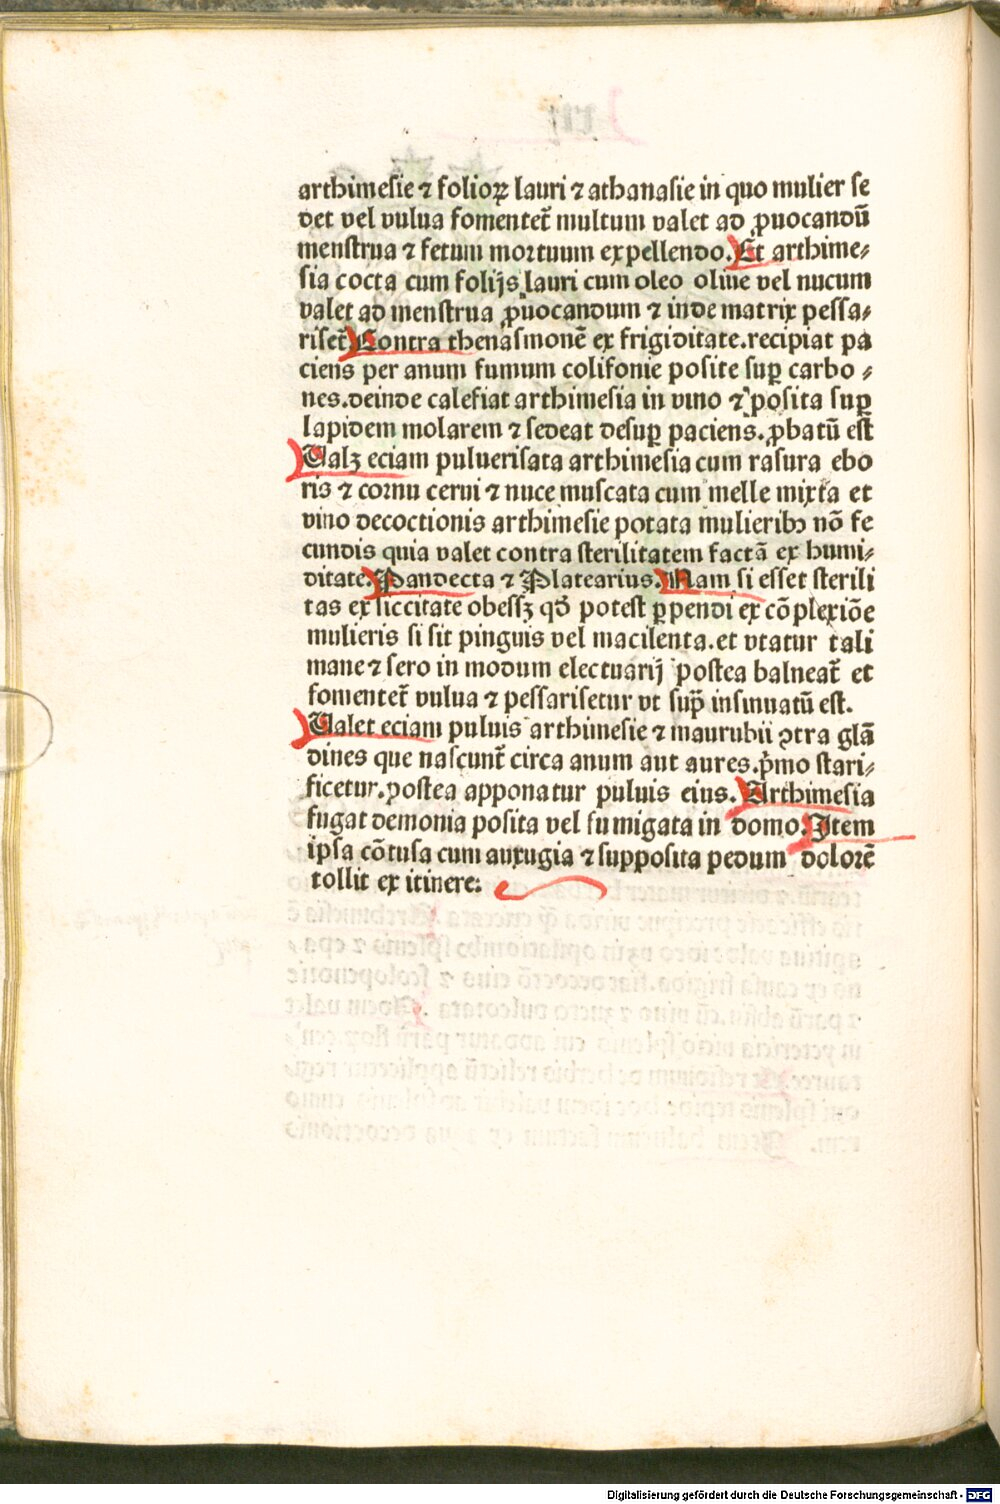 arthimesie ⁊ folioꝝ lauri ⁊ athanasie in quo mulier se
det vel vulua fomenteť multum valet ad ꝓuocandū
menstrua ⁊ fetum mortuum expellendo. Et arthime⸗
sia cocta cum folijs lauri cum oleo oliue vel nucum
valet ad menstrua ꝓuocandum ⁊ inde matrix pessa⸗
riseť Contra thenasmonē ex frigiditate. recipiat pa
ciens per anum fumum colifonie posite suꝑ carbo⸗
nes. deinde calefiat arthimesia in vino ⁊ posita suꝑ
lapidem molarem ⁊ sedeat desuꝑ paciens. ꝓbatū est
Ualꝫ eciam puluerisata arthimesia cum rasura ebo
ris ⁊ cornu cerui ⁊ nuce muscata cum melle mixta et
vino decoctionis arthimesie potata mulieribꝰ nō fe
cundis quia valet contra sterilitatem factā ex humi⸗
ditate. Pandecta ⁊ Platearius. Nam si esset sterili
tas ex siccitate obessꝫ qď potest ꝑpendi ex cōplexiōe
mulieris si sit pinguis vel macilenta. et vtatur tali
mane ⁊ sero in modum electuarij postea balneať et
fomenteť vulua ⁊ pessarisetur vt sup̄ insinuatū est.
Ualet eciam puluis arthimesie ⁊ maurubii ꝯtra glā
dines que nascunť circa anum aut aures. p̄mo stari⸗
ficetur. postea apponatur puluis eius. Arthimesia
fugat demonia posita vel fumigata in domo. Item
ipsa cōtusa cum auxugia ⁊ supposita pedum dolorē
tollit ex itinere:
Digitalisierung gefördert durch die Deutsche Forschungsgemeinschaft - DFG